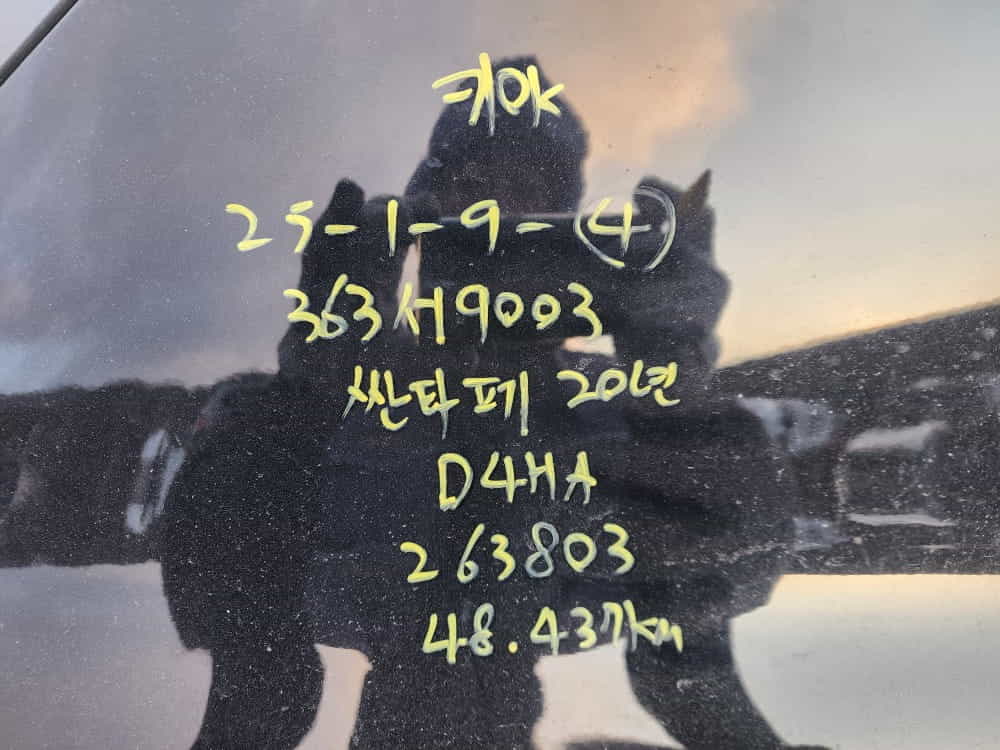 케이K
25-1-9-④
363서9003
싼타페기 20년
D4HA
263803
48.437km